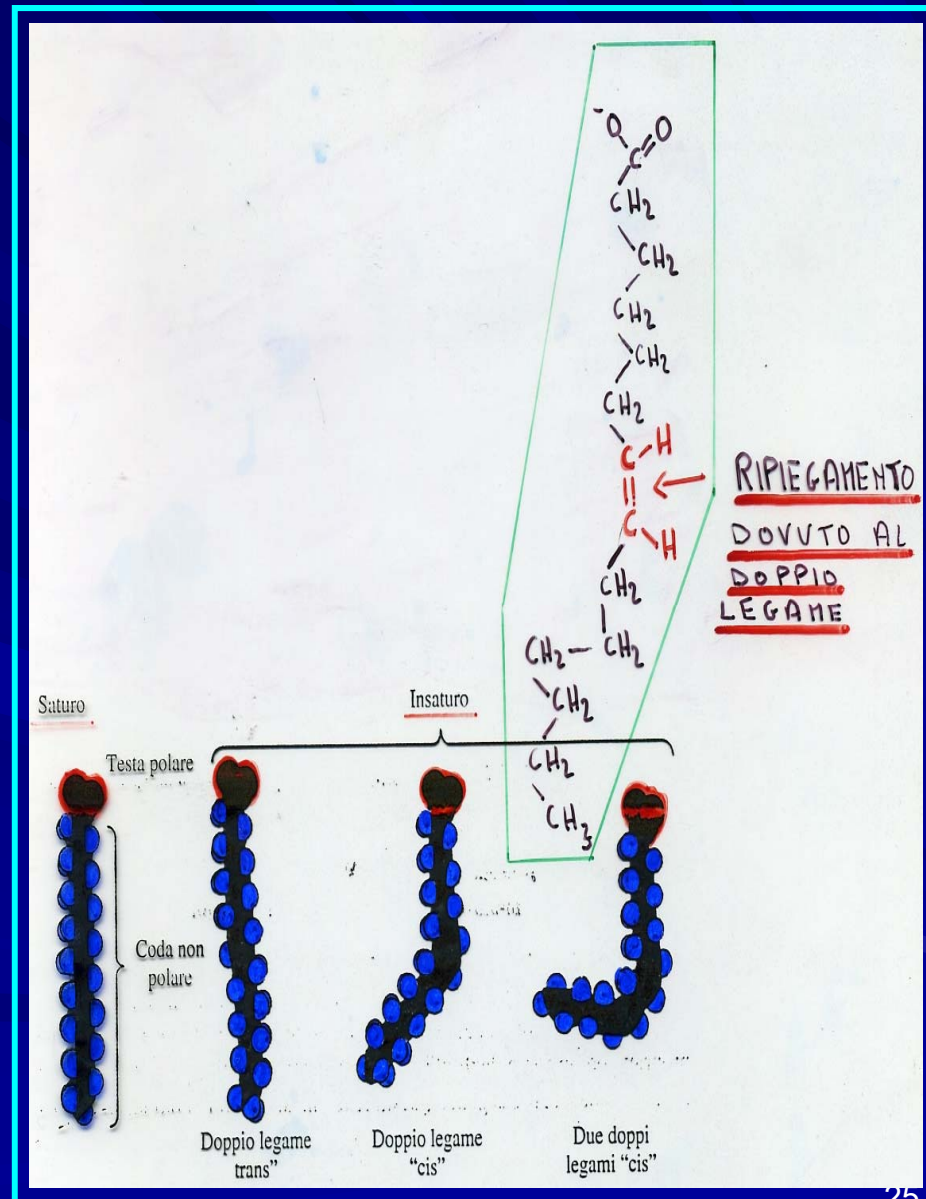 ⁻O O
C
CH2
CH2
CH2
CH2
CH2
C H
C H
CH2
CH2 – CH2
CH2
CH2
CH3
RIPIEGAMENTO
DOVUTO AL
DOPPIO
LEGAME
Saturo
Insaturo
Testa polare
Coda non
polare
Doppio legame
trans”
Doppio legame
“cis”
Due doppi
legami “cis”
25